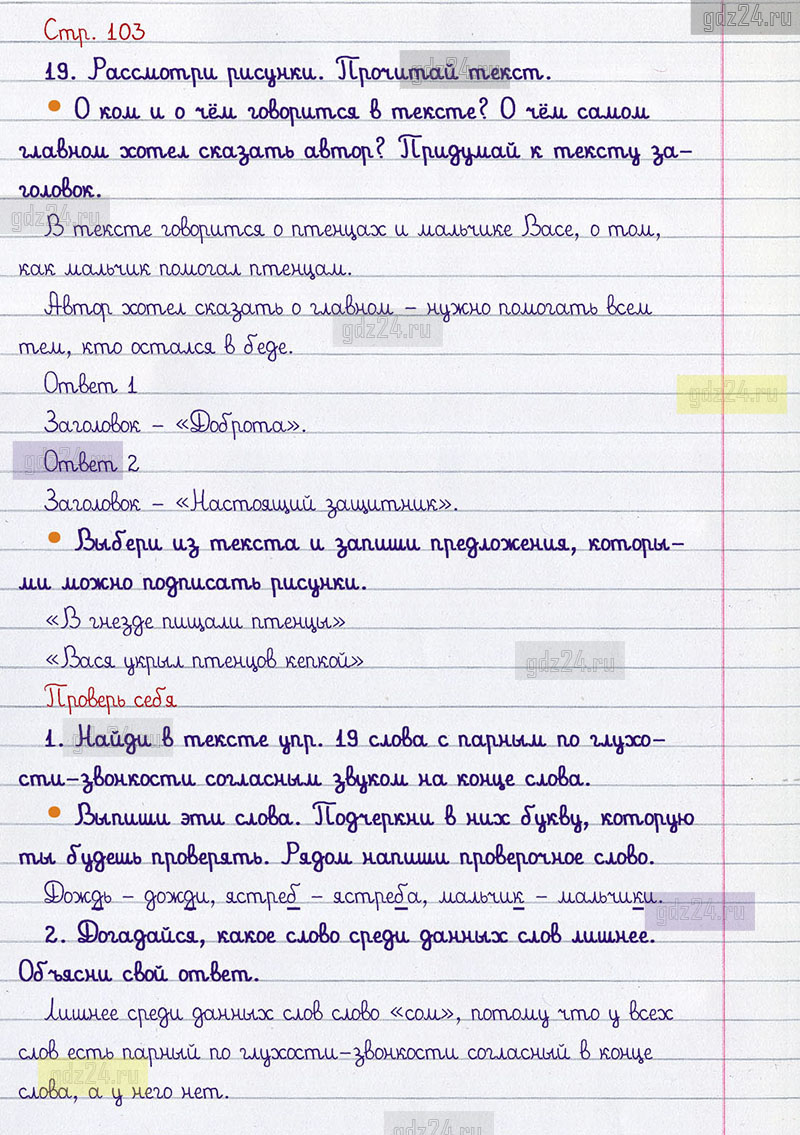 gdz24.ru
Стр. 103
19. Рассмотри рисунки. Прочитай текст.
gdz24.ru
• О ком и о чём говорится в тексте? О чём самом
главном хотел сказать автор? Придумай к тексту за-
головок.
gdz24.ru
В тексте говорится о птенцах и мальчике Васе, о том,
как мальчик помогал птенцам.
Автор хотел сказать о главном – нужно помогать всем
gdz24.ru
тем, кто остался в беде.
Ответ 1
gdz24.ru
Заголовок – «Доброта».
Ответ 2
gdz24.ru
Заголовок – «Настоящий защитник».
• Выбери из текста и запиши предложения, которы-
ми можно подписать рисунки.
«В гнезде пищали птенцы»
«Вася укрыл птенцов кепкой»
gdz24.ru
Проверь себя
1. Найди в тексте упр. 19 слова с парным по глухо-
gdz24.ru
сти-звонкости согласным звуком на конце слова.
• Выпиши эти слова. Подчеркни в них букву, которую
ты будешь проверять. Рядом напиши проверочное слово.
Дождь – дожди, ястреб – ястреба, мальчик – мальчики.
gdz24.ru
2. Догадайся, какое слово среди данных слов лишнее.
Объясни свой ответ.
Лишнее среди данных слов слово «сом», потому что у всех
слов есть парный по глухости-звонкости согласный в конце
gdz24.ru
слова, а у него нет.
gdz24.ru